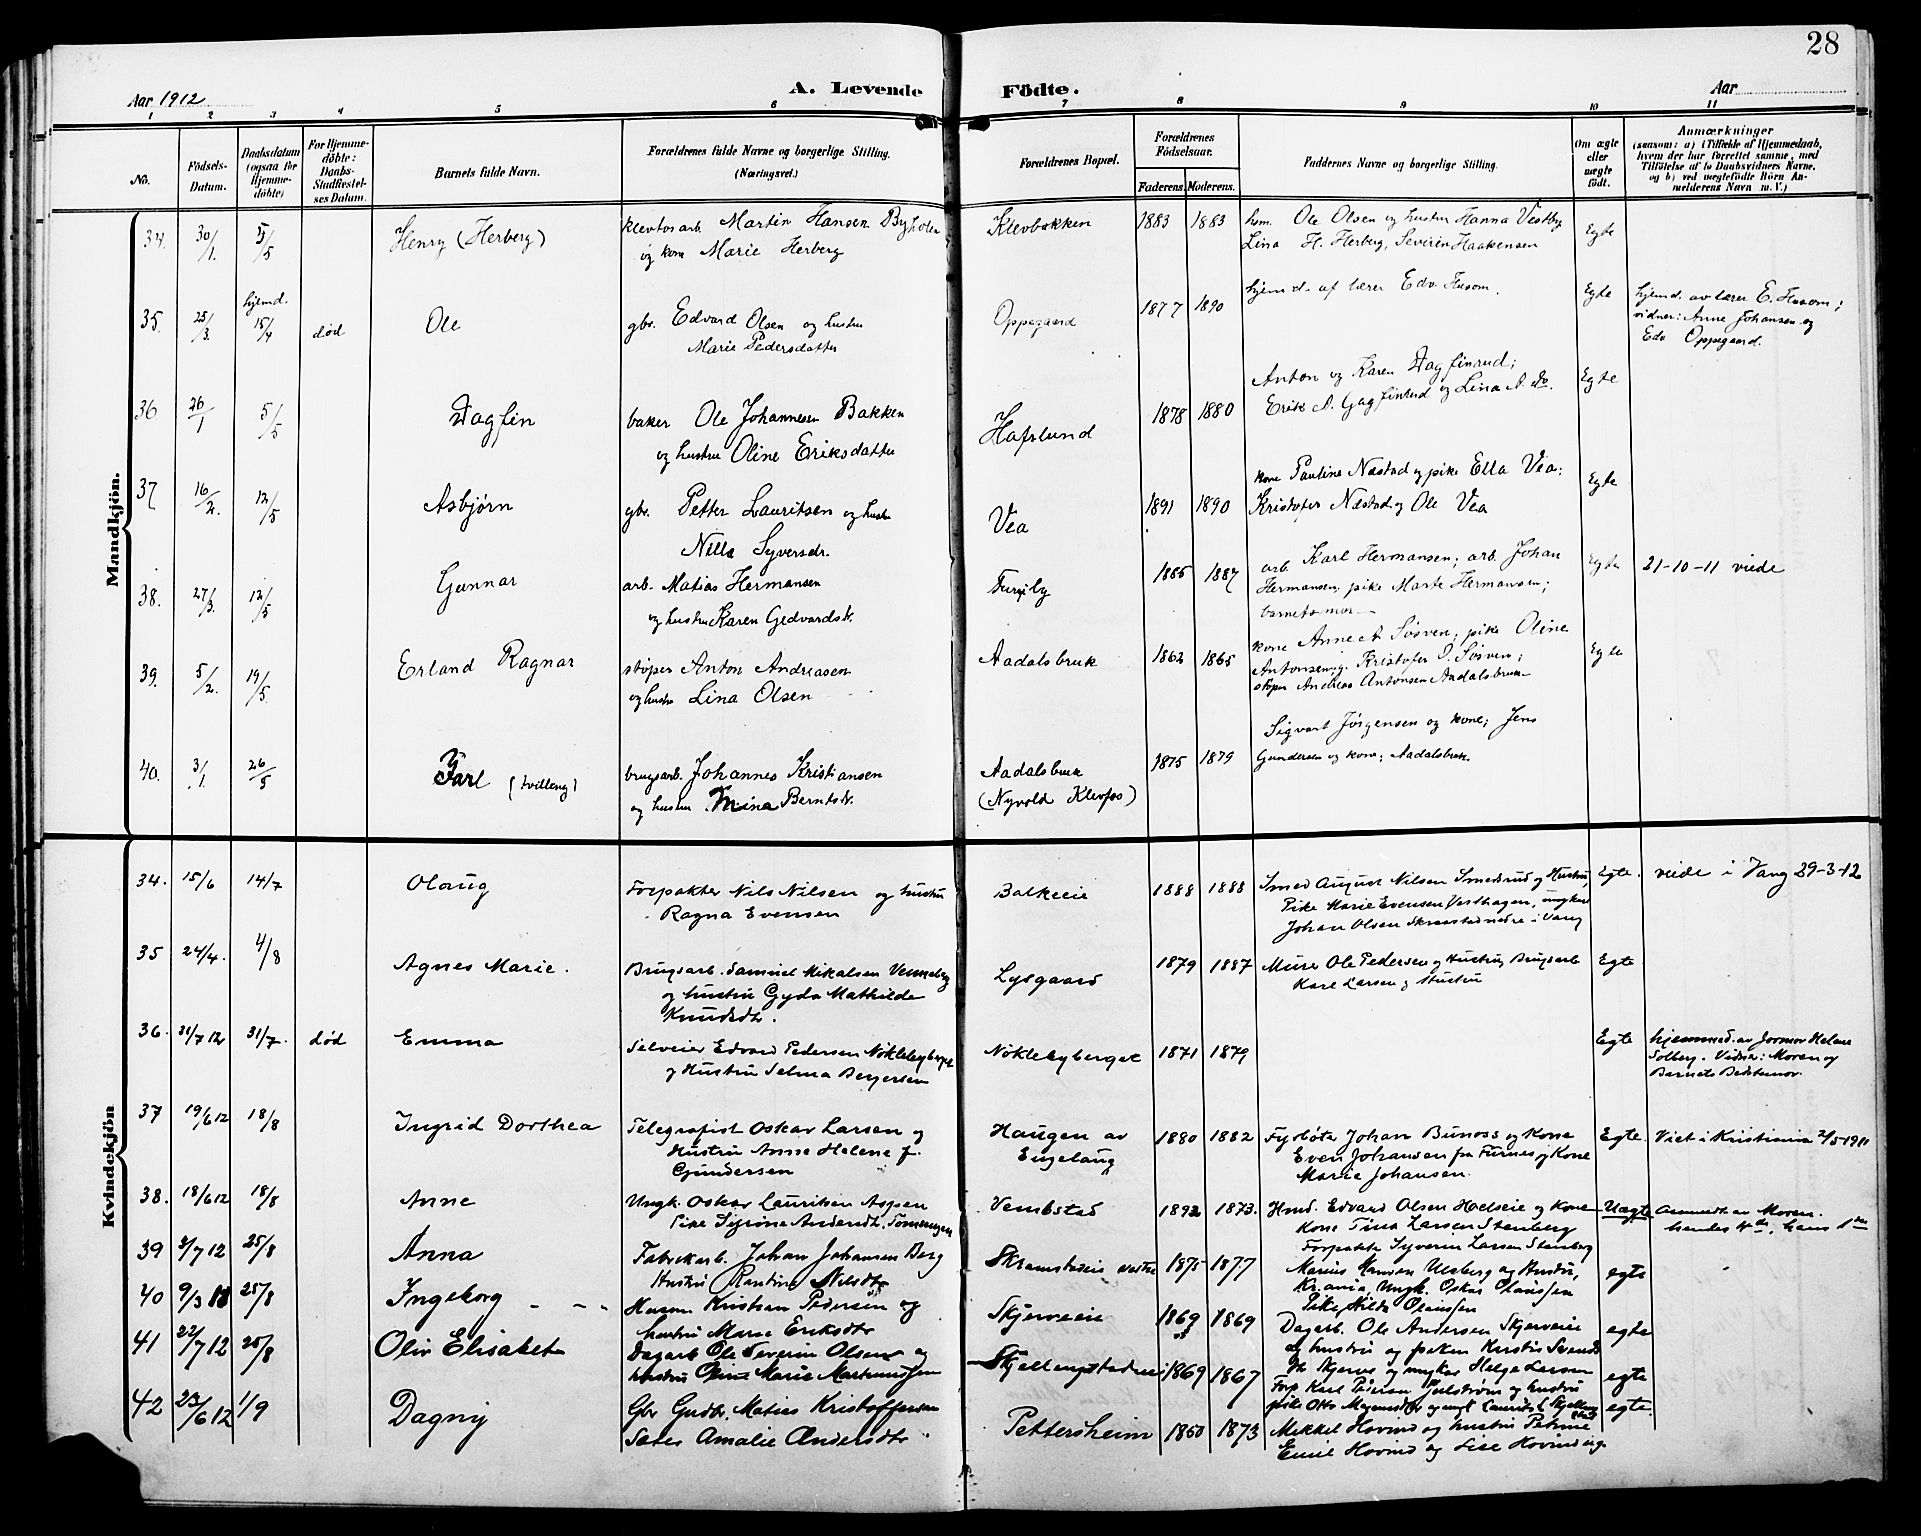 28
Aar 1912
A. Levende Fødte.
Aar
1 2 3 4 5 6 7 8 9 10 11
No.
Fødsels-Datum.
Daabsdatum (ogsaa for Hjemme-døbte)
For Hjemme-døbte: Daabs-Stadfæstel-ses Datum.
Barnets fulde Navn.
Forældrenes fulde Navne og borgerlige Stilling.
(Næringsvei.)
Forældrenes Bopæl.
Forældrenes Fødselsaar.
Faderens. Moderens.
Faddernes Navne og borgerlige Stilling.
Om ægte eller uægte født.
Anmærkninger
(saasom: a) i Tilfælde af Hjemmedaab,
hvem der har forrettet samme, med
Tilføielse af to Daabsvidners Navne.
og b) ved uægtefødte Børn An-
melderens Navn m. V.)
Mandkjøn.
34. 30/1. 5/5 Henry (Herberg) klevfos arb. Martin Hansen Byholen Klevbakken 1883 1883 hem. Ole Olsen og hustru Hanna Vestby Egte
og kone Marie Herberg Lina H. Herberg, Severin Haakensen
35. 25/3. hjemd. 15/4 død Ole gbr. Edvard Olsen og hustru Oppegaard 1877 1890 hjemd. af lærer Edv. Husom. Egte hjemd. av lærer E. Husom;
Marie Pedersdatter vidner: Anne Johansen og
Edv Oppegaard.
36 26/1 5/5 Dagfin baker Ole Johannesen Bakken Hafslund 1878 1880 Anton og Karen Dagfinrud; Egte
og hustru Oline Eriksdatter Erik A. Gagfinrud og Lina A. do.
37 16/2. 12/5 Asbjørn gbr. Petter Lauritsen og hustru Vea 1891 1890 kone Pauline Næstad og pike Ella Vea; Egte
Nilla Syversdr. Kristofer Næstad og Ole Vea
38. 27/3. 12/5 Gunnar arb. Matias Hermansen 1885 1887 arb Karl Hermansen; arb. Johan Egte 21-10-11 viede
og hustru Karen Gedvardsdr. Hermansen, pike Marte Hermansen;
barnets mor
39. 5/2. 19/5. Erland Ragnar støper Anton Andreasen Aadalsbruk 1862 1865 kone Anne A. Søsven; pike Oline Egte
og hustru Lina Olsen Antonsen; g. Kristofer O. Søsven;
støper Andreas Antonsen Aadalsbruk
40. 3/1. 26/5 Jarl (tvilling) brugsarb. Johannes Kristiansen Aadalsbruk 1875 1879 Sigvart Jørgensen og kone; Jens
og hustru Mina Berntsdr. (Nyvold Klevfos) Gundersen og kone; Aadalsbruk.
Kvindekjøn
34. 15/6 14/7 Olaug Forpakter Nils Nilsen og hustru Balkeeie 1888 1888 Smed August Nilsen Smedsrud og Hustru, Egte. viede i Vang 29-3-12
Ragna Evensen Pike Marie Evensen Vesthagen, ungkar
Johan Olsen Skraastad nedre i Vang
35 24/4. 4/8 Agnes Marie. Brugsarb. Samuel Mikalsen Venneberg Lysgaard 1879 1887 Murer Ole Pedersen og Hustru, Brugsarb Egte.
og hustru Gyda Mathilde Karl Larsen og Hustru
Knudsdtr.
36. 31/7 12 31/7. død Emma Selveier Edvard Pedersen Nøklebyberget Nøklebyberget 1871 1879 Egte hjemmed. av Jormor Helene
og Hustru Selma Bergersen Solberg. Vidner: Moren og
Barnets Bedstemor.
37 19/6 12 18/8 Ingrid Dorthea Telegrafist Oskar Larsen og Haugen av 1880 1882 Fyrbøter Johan Bunoss og Kone Egte. Viet i Kristiania 2/5-1911
Hustru Anne Helene f. Engelaug Even Johansen fra Furnes og Kone
Gundersen Marie Johansen.
38. 18/6 12 18/8 Anne Ungk. Oskar Lauritsen Aspen Vembstad 1892 1873. Hmd. Edvard Olsen Hoelseie og Kone Uægte Anmeldt av Moren.
Pike Syrine Andersdtr. Tommengen Kone Tina Larsen Stenberg hendes 4de, hans 1ste
Forpakter Syverin Larsen Stenberg
39 2/7 12 25/8 Anna Fabrikarb. Johan Johansen Berg Skramstadeie vestre 1875 1877 Marius Hansen Ulsberg og Hustru, egte
Hustru Rentine Nilsdtr Kr.ania, Ungk. Oskar Olaussen
Pike Hilda Olaussen
40 9/3 12 25/8 Ingeborg Husm. Kristian Pedersen og Skjerveeie 1869 1869 Dagarb. Ole Andersen Skjerveeie egte
hustru Marie Eriksdtr og hustru og piken Kristis Svends
41 22/7 12 25/8 Oliv Elisabet Dagarb Ole Severin Olsen og Skjellungstadeie 1869 1867 Th. Skjerve og ungkar Helge Larsen egte
hustru Oline Marie Martinussen Forp Karl Pedersen og hustru
42 23/6 12 1/9 Dagny Gbr Gudbr. Matias Kristoffersen Pettersheim 1850 1873 egte.
Amalie Andersdtr Mikkel Hovind og hustru Petrine
Emil Hovind og Lise Hovind